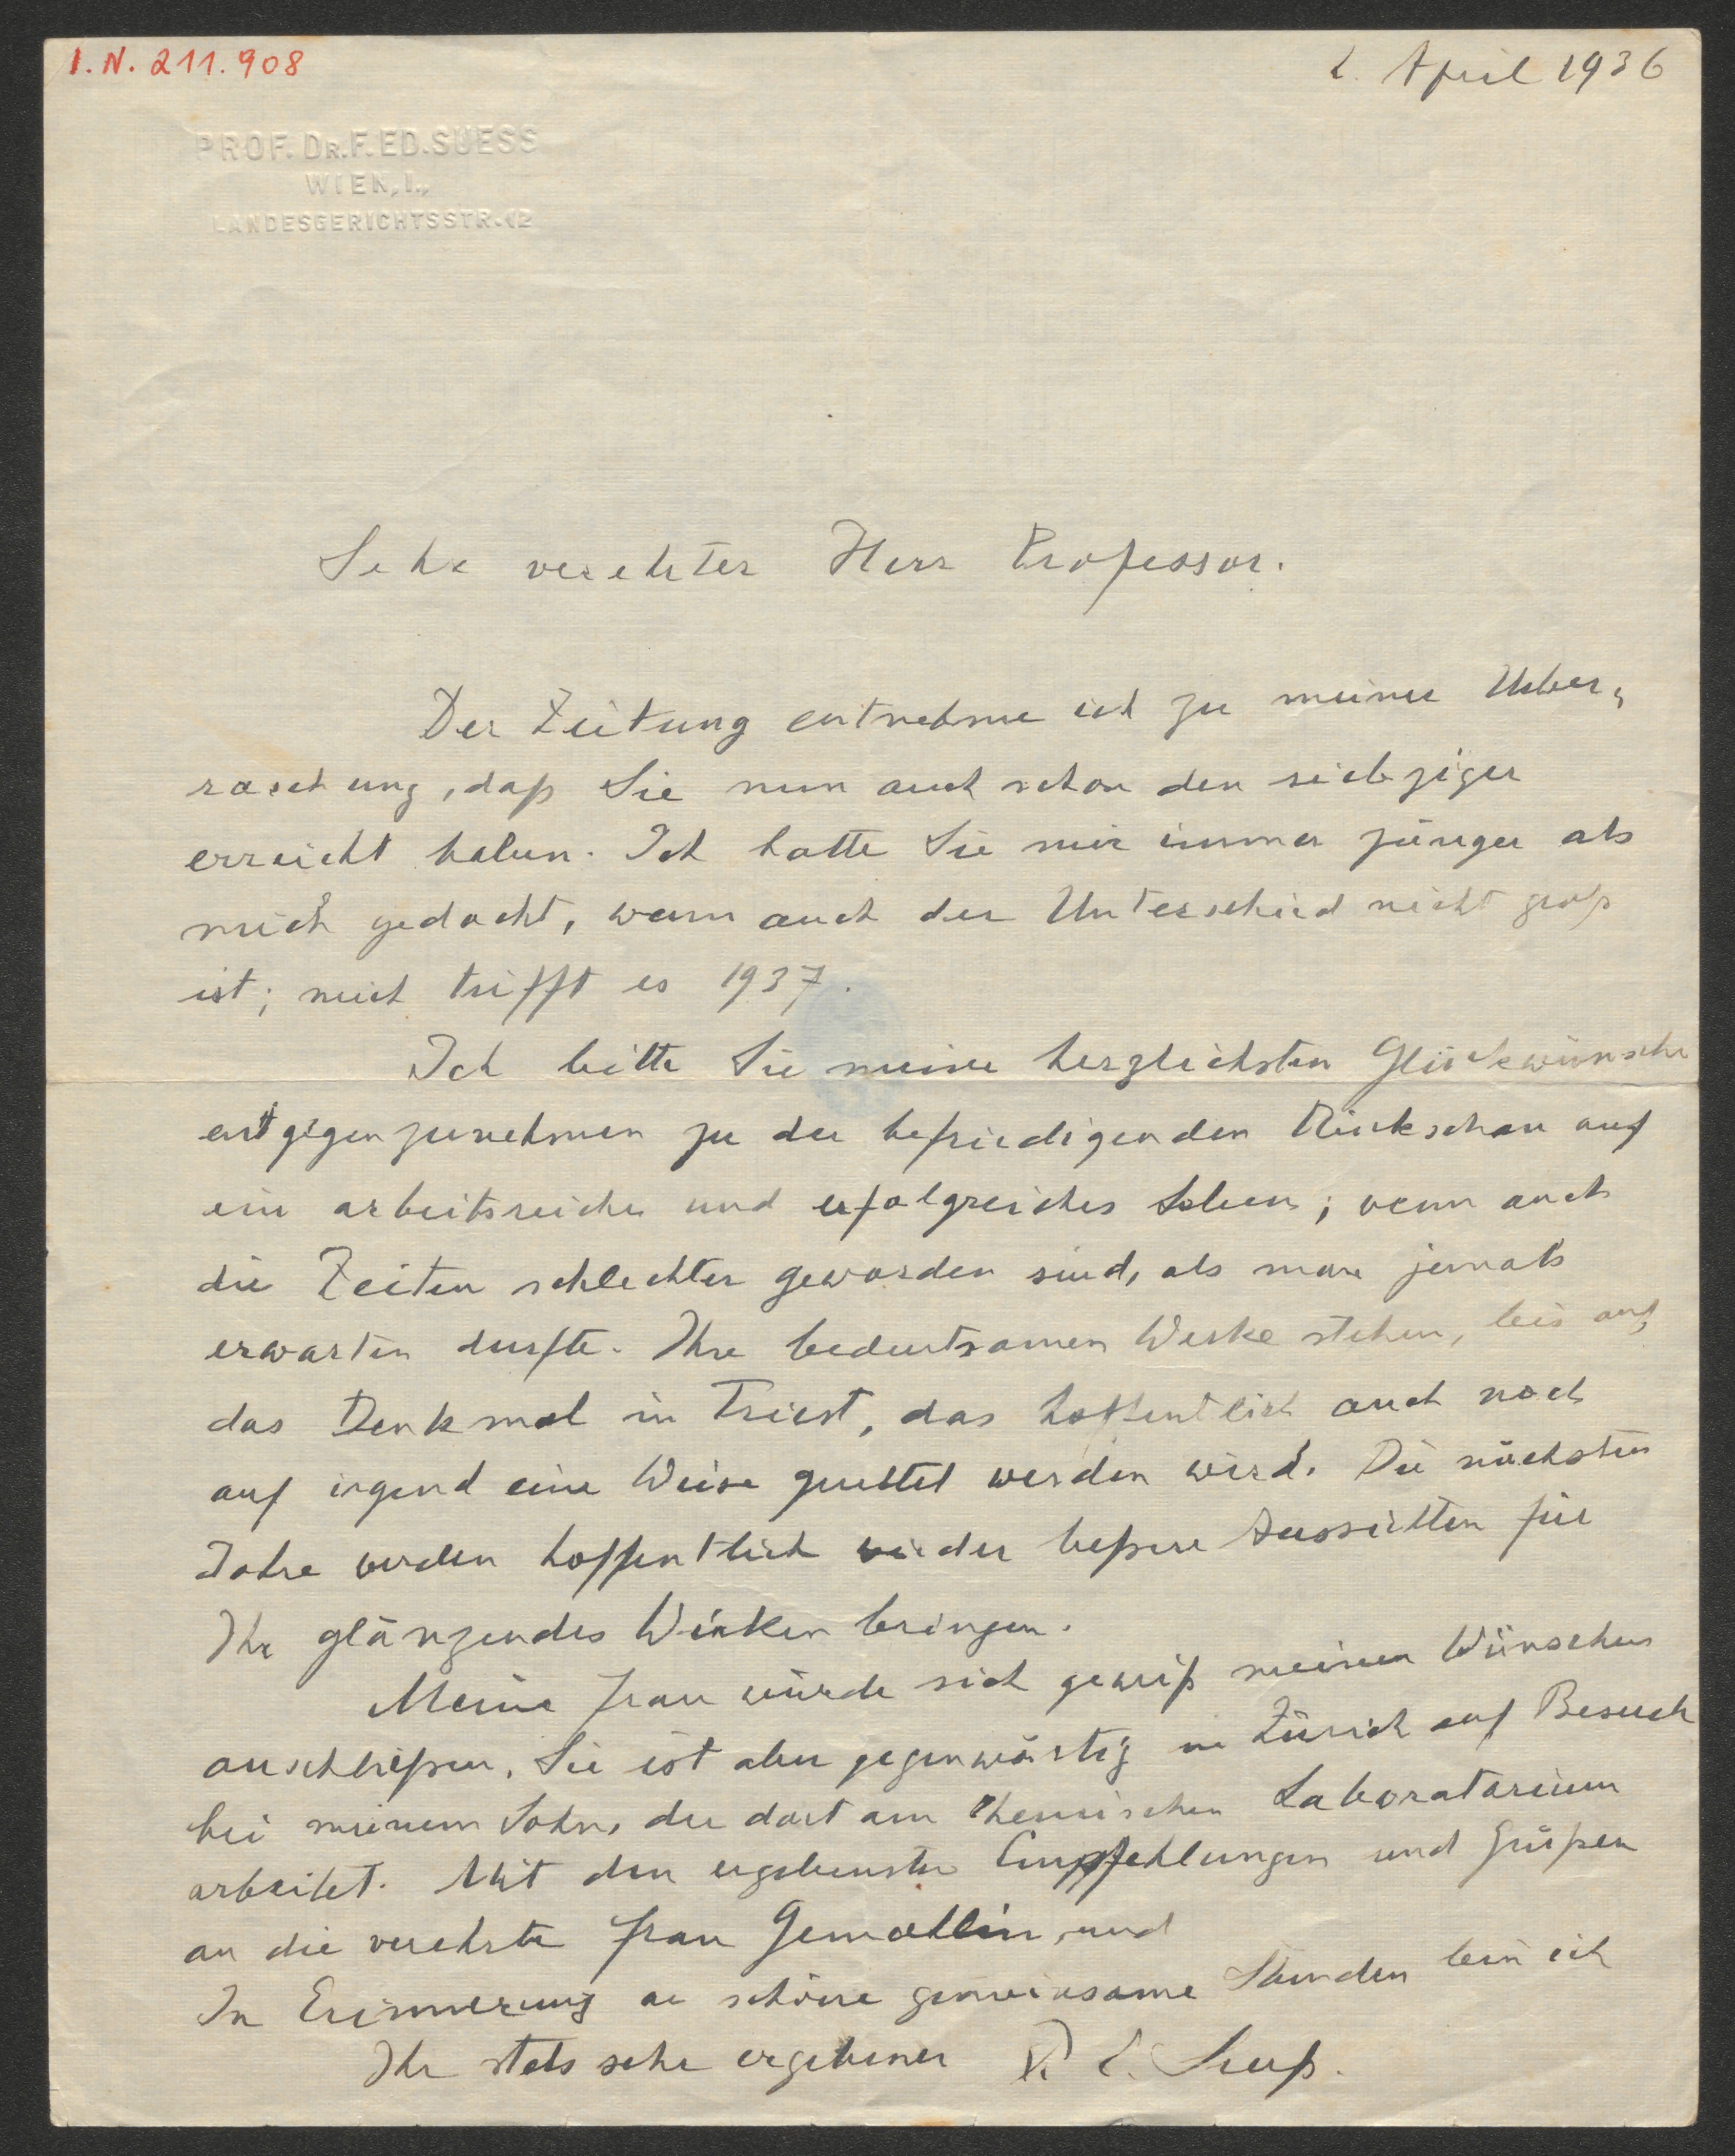 I.N. 211.908
2. April 1936
PROF. DR. F. ED. SUESS
WIEN, I.,
LANDESGERICHTSSTR. 12
Sehr verehrter Herr Professor.
Der Zeitung entnehme ich zu meiner Ueber„
raschung, daß Sie nun auch schon den siebziger
erreicht haben. Ich hatte Sie mir immer jünger als
mich gedacht, wenn auch der Unterschied nicht groß
ist; mich trifft es 1937.
Ich bitte Sie meine herzlichsten Glückwünsche
entgegenzunehmen zu der befriedigenden Rückschau auf
ein arbeitsreiches und erfolgreiches Leben; wenn auch
die Zeiten schlechter geworden sind, als man jemals
erwarten durfte. Ihre bedeutsamen Werke stehen, bis auf
das Denkmal in Triest, das hoffentlich auch noch
auf irgend eine Weise gerettet werden wird. Die nächsten
Jahre werden hoffentlich wieder beßere Aussichten für
Ihr glänzendes Wirken bringen.
Meine Frau würde sich gewiß meinen Wünschen
anschließen. Sie ist aber gegenwärtig in Zürich auf Besuch
bei meinem Sohn, der dort am Chemischen Laboratorium
arbeitet. Mit den ergebensten Empfehlungen und Grüßen
an die verehrte Frau Gemahlin, und
In Erinnerung an schöne gemeinsame Stunden bin ich
Ihr stets sehr ergebener F. E. Sueß.